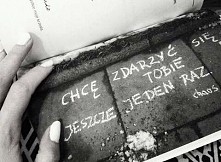 CHCĘ ZDARZYĆ SIĘ
TOBIE
JESZCZE JEDEN RAZ
chaos